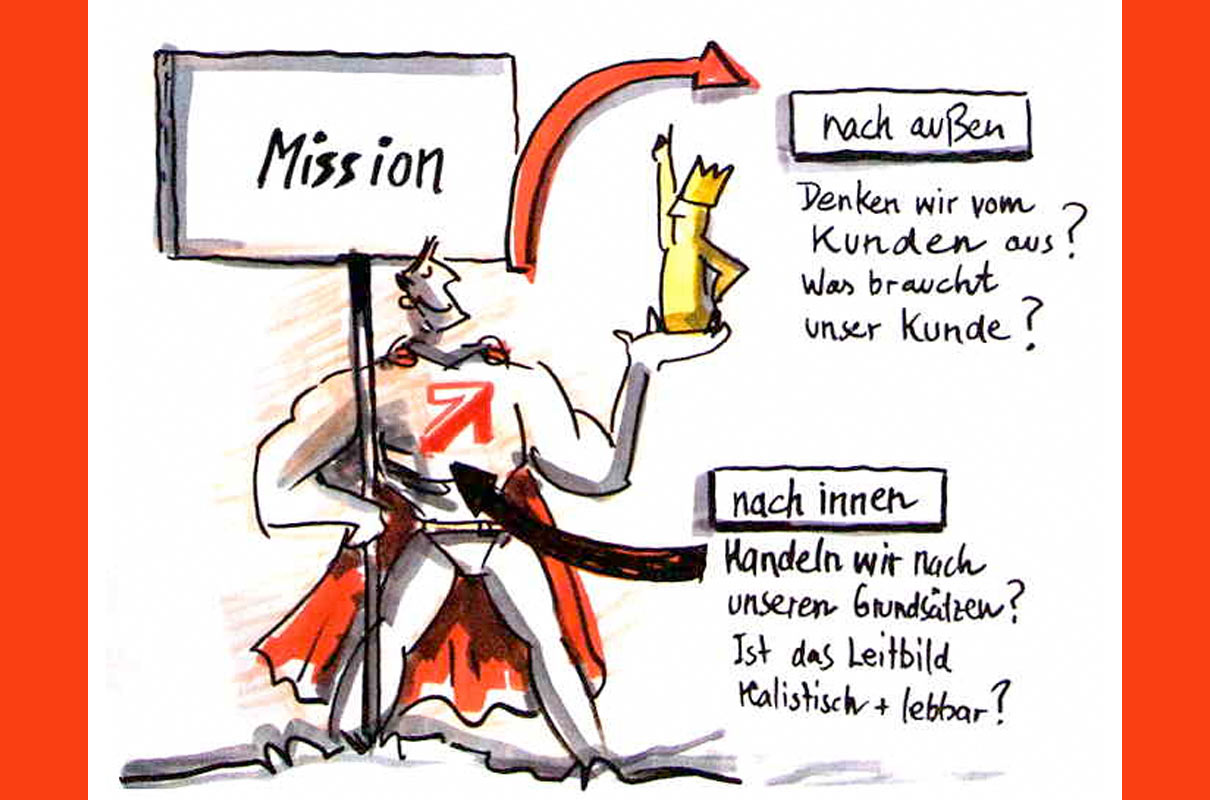 Mission
nach außen
Denken wir vom
Kunden aus?
Was braucht
unser Kunde?
nach innen
Handeln wir nach
unseren Grundsätzen?
Ist das Leitbild
realistisch + lebbar?